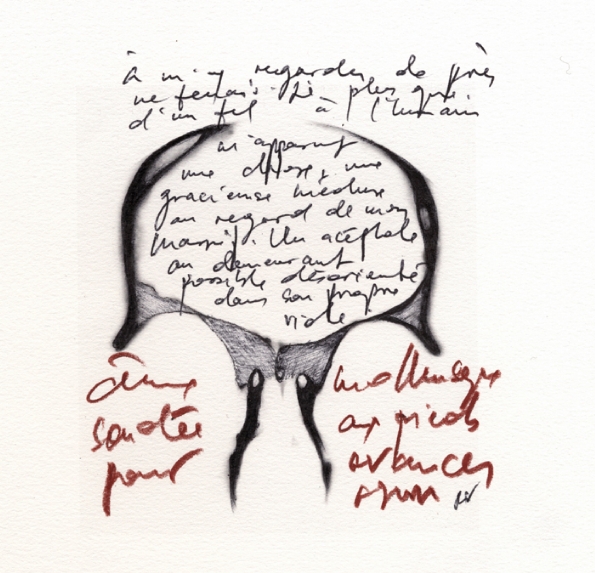 à m'y regarder de près
ne tenais-je plus que
d'un fil à l'humain
m'apparut
une chose, une
gracieuse méduse
au regard de mon
Un acéphale
au demeurant
possible désorienté
dans son propre
vide
âme
pour
mollusque
aux pieds
avancer